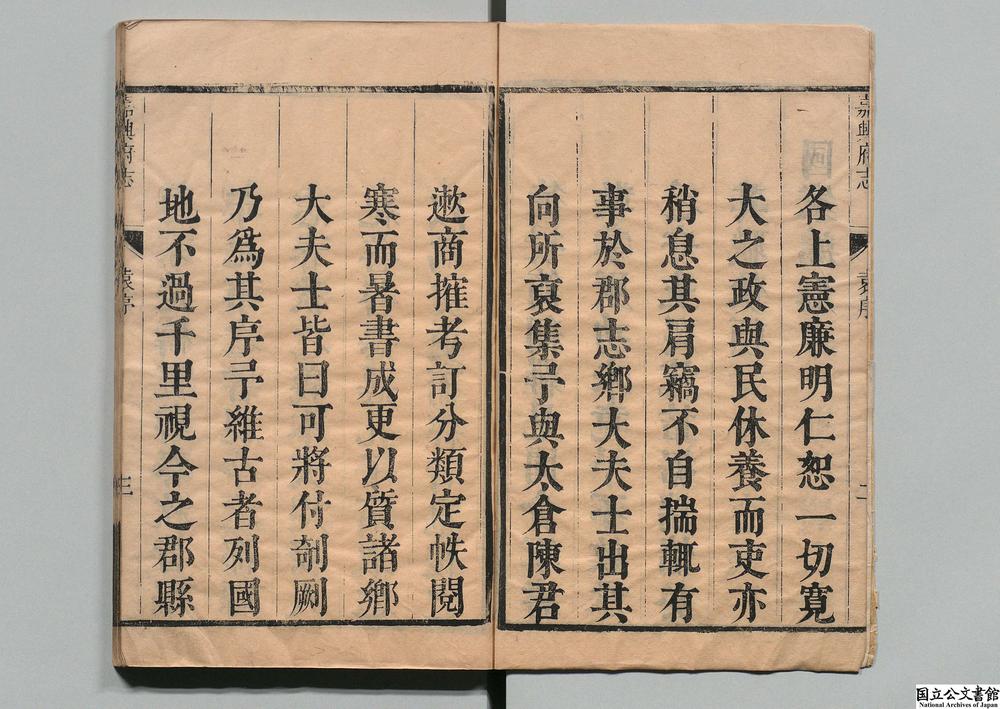 嘉興府志
袁序
二
各上憲廉明仁恕一切寛
大之政與民休養而吏亦
稍息其肩竊不自揣輒有
事於郡志鄉大夫士出其
向所裒集予與太倉陳君
遬商搉考訂分類定帙閱
寒而暑書成更以質諸鄉
大夫士皆曰可將付剞劂
乃爲其序予維古者列國
地不過千里視今之郡縣
嘉興府志
袁序
三
国立公文書館
National Archives of Japan